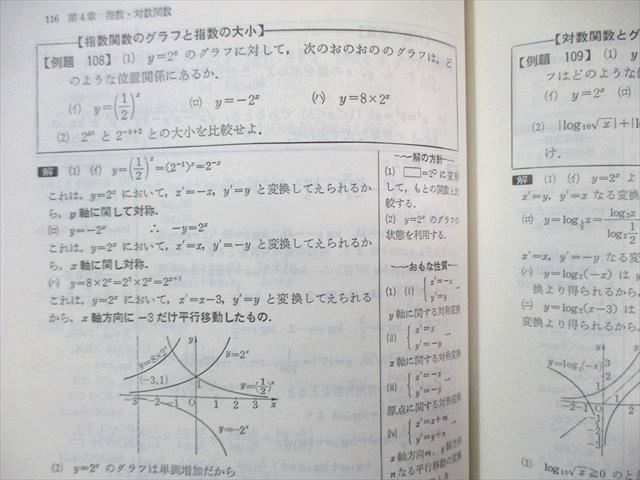 116 第4章 指数・対数関数
【指数関数のグラフと指数の大小】
【例題 108】 (1) y=2ˣ のグラフに対して, 次のおのおののグラフは, ど
のような位置関係にあるか.
(イ) y=(1/2)ˣ (ロ) y=-2ˣ (ハ) y=8×2ˣ
(2) と との大小を比較せよ.
解 (1) (イ) y=(1/2)ˣ=(2⁻¹)ˣ=2⁻ˣ
これは, y=2ˣ において, x'=-x, y'=y と変換してえられるか
ら, y 軸に関して対称.
(ロ) y=-2ˣ ∴ -y=2ˣ
これは, y=2ˣ において, x'=x, y'=-y と変換してえられるか
ら, x 軸に関し対称.
(ハ) y=8×2ˣ=2³×2ˣ=2ˣ⁺³
これは, y=2ˣ において, x'=x-3, y'=y と変換してえられる
から, x 軸方向に -3 だけ平行移動したもの.
y=8×2ˣ
y
y=2ˣ
(-3,1)
1
y=(1/2)ˣ
-3 -2 -1 O 1 2 3 x
y=-2ˣ
(2) y=2ˣ のグラフは単調増加だから
解の方針
(1) □=2○ に変形
して, もとの関数と比
較する.
(2) y=2ˣ のグラフの
状態を利用する.
おもな性質
(1) (i) { x'=-x
y'=y →
y 軸に関する対称変換
(ii) { x'=x
y'=-y →
x 軸に関する対称変換
(iii) { x'=-x
y'=-y →
原点に関する対称変換
(iv) { x'=x+m
y'=y+n →
x 軸方向 m, y 軸方向
n なる平行移動の変換
【対数関数とグ
【例題 109】
フはどのような
(イ) y=2ˣ (ロ)
(2) |log₁₀√x|+|l
け.
解 (1) (イ) y=2ˣ よ
x'=y, y'=x なる変換
(ロ) y=
y=log₂(-x) は
換より得られるから,
y=log₂(x-3) は
変換より得られるから
y=log₂(-x)
y
3
2
1
O
-1
-2
-3
(2) log₁₀√x≧0 のと